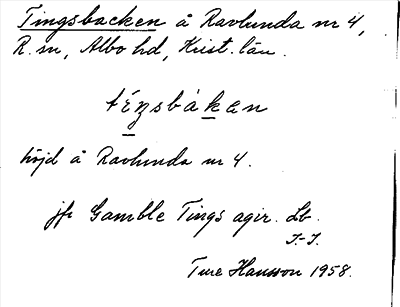 Tingsbacken å Ravlunda nr 4,
R. sn, Albo hd, Krist. län.
tíŋsbàkɐn
höjd å Ravlunda nr 4.
jfr Gamble Tings agir. Lb.
I.-I.
Ture Hansson 1958.